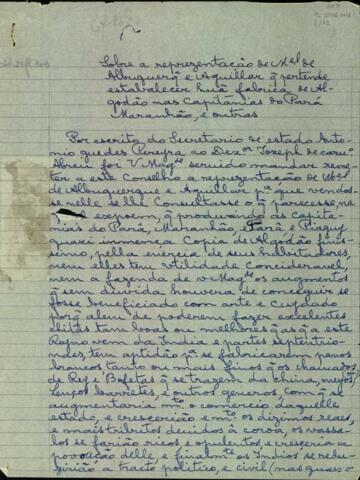 Sobre a reprezentação de M.el de
Albuquerq̃ e Aguillar q̃ pertende
estabalecer huã fabrica de Al-
godão nas Capitanias do Pará
Maranhão, e outras
Por escrito do Secretario de estado Anto-
nio guedes Pereyra ao Dez.or Joseph de
Abreu foi V Mag.de servido mandar reme-
ter a este Conselho a reprezentação de M.el
de Albuquerque e Aguillar p.a que vendo-
se nelle se lhe Consultasse o q̃ parecesse, na
q.l expoem, q̃ produzindo as Capita-
nias do Pará, Maranhão, e Piaguy
quazi immença Copia de Algodão finis-
simo, pella enercia de seus habitadores,
nem elles tem Utilidade Consideravel,
nem a fazenda de V Mag.de os augmentos
q̃ sem duvida, houvera de conseguir se
fosse beneficiado com arte e Cuidado
porq̃ alem de poderem fazer excelentes
tam boas ou melhores q̃ as q̃ a este
Reyno vem da India e partes septentrio-
nes, tem aptidão p.a se fabricarem panos
brancos tanto ou mais finos q̃ os chamados
de Rey e Bofetas q̃ se trazem da china,
Lenços barretes, e outros generos, com q̃ se
augmentaria m.to o comercio daquelle
estado, e crescerião e m.to os dizimos reaes,
e mais tributos devidos á coroa, os vassa-
los se farião ricos e opulentos, e cresceria a
povoução delle, e finalm.te os Indios se redu-
zirião a tracto politico, e civil (mas quazi o